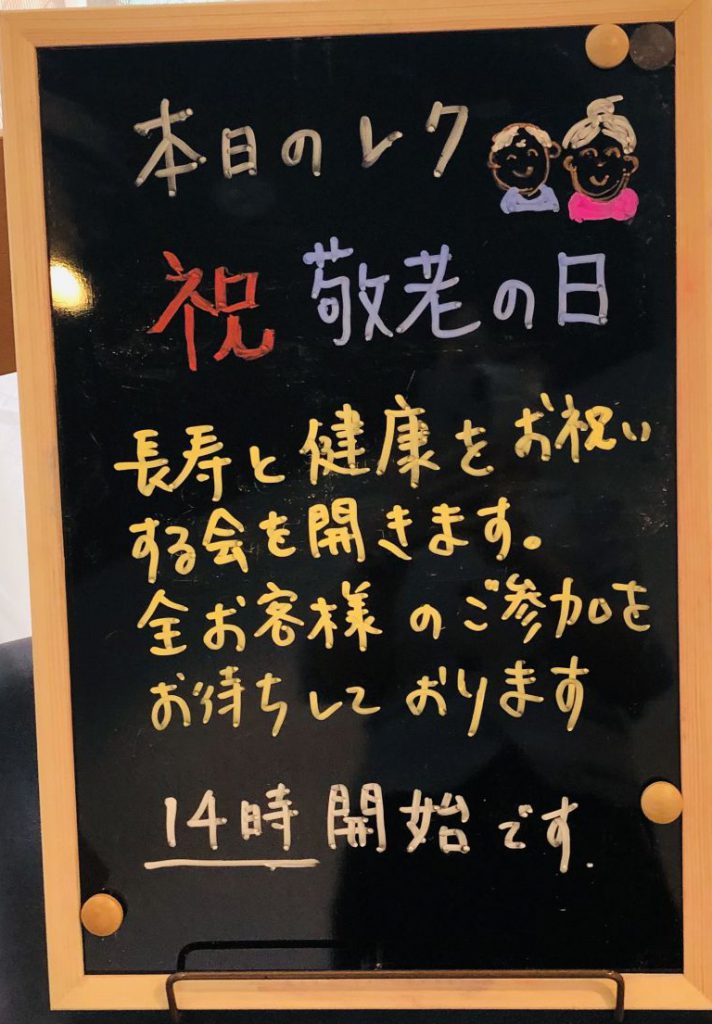 本日のレク
祝 敬老の日
長寿と健康をお祝い
する会を開きます。
全お客様のご参加を
お待ちしております
14時開始です.